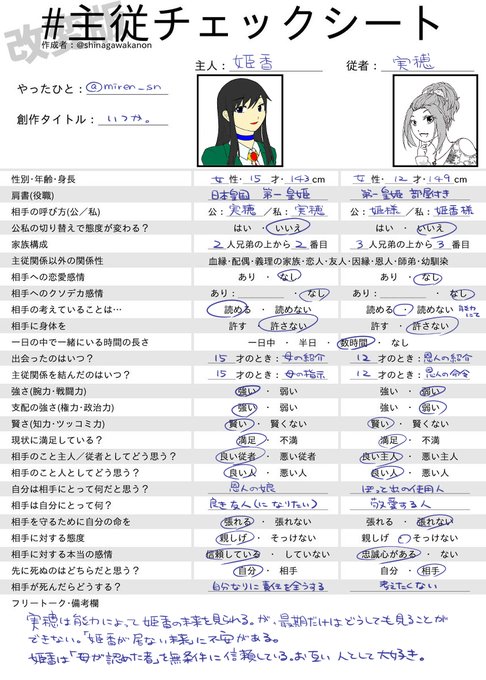 改変版
#主従チェックシート
作成者：@shinagawakanon
やったひと：@miren_sn
創作タイトル：いつか。
主人：姫香　従者：実穂
性別・年齢・身長　女性・15才・143cm　女性・12才・149cm
肩書(役職)　日本皇国 第一皇姫　第一皇姫 部屋付き
相手の呼び方(公／私)　公：実穂／私：実穂　公：姫様／私：姫香様
公私の切り替えで態度が変わる？　はい・いいえ　はい・いいえ
家族構成　2人兄弟の上から2番目　3人兄弟の上から3番目
主従関係以外の関係性　血縁・配偶・義理の家族・恋人・友人・因縁・恩人・師弟・幼馴染
相手への恋愛感情　あり・なし　あり・なし
相手へのクソデカ感情　あり：・なし　あり：・なし
相手の考えていることは…　読める・読めない　読める・読めない 能力にて
相手に身体を　許す・許さない　許す・許さない
一日の中で一緒にいる時間の長さ　一日中・半日・数時間・なし
出会ったのはいつ？　15才のとき：母の紹介　12才のとき：恩人の紹介
主従関係を結んだのはいつ？　15才のとき：母の指示　12才のとき：恩人の命令
強さ(腕力・戦闘力)　強い・弱い　強い・弱い
支配の強さ(権力・政治力)　強い・弱い　強い・弱い
賢さ(知力・ツッコミ力)　賢い・賢くない　賢い・賢くない
現状に満足している？　満足・不満　満足・不満
相手のこと主人／従者としてどう思う？　良い従者・悪い従者　良い主人・悪い主人
相手のこと人としてどう思う？　良い人・悪い人　良い人・悪い人
自分は相手にとって何だと思う？　恩人の娘　ぽっと出の使用人
相手は自分にとって何？　良き友人(になりたい)　敬愛する人
相手を守るために自分の命を　張れる・張れない　張れる・張れない
相手に対する態度　親しげ・そっけない　親しげ・そっけない
相手に対する本当の感情　信頼している・していない　忠誠心がある・ない
先に死ぬのはどちらだと思う？　自分・相手　自分・相手
相手が死んだらどうする？　自分なりに責任を全うする　考えたくない
フリートーク・備考欄
実穂は能力によって姫香の未来を見られる。が、最期だけはどうしても見ることが
できない。「姫香が居ない未来」に不安がある。
姫香は「母が認めた者」を無条件に信頼している。お互い人として大好き。